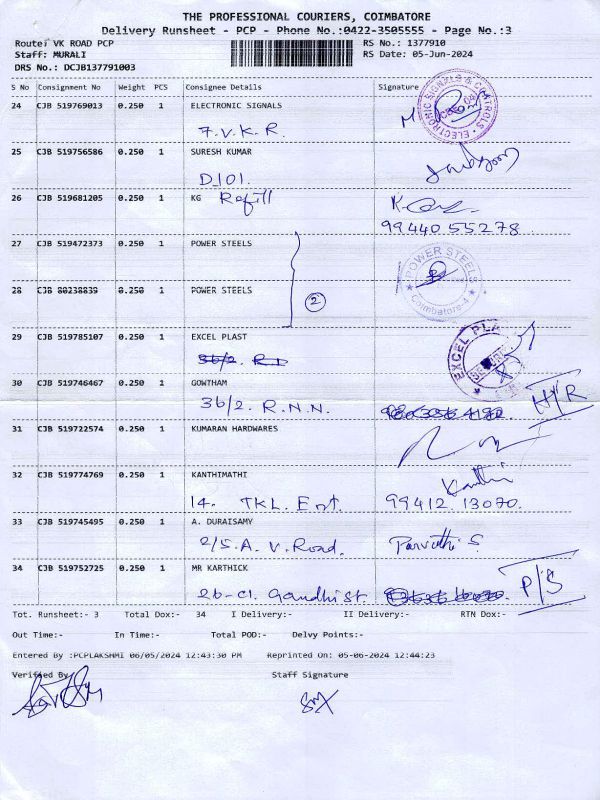 THE PROFESSIONAL COURIERS, COIMBATORE
Delivery Runsheet - PCP - Phone No.:0422-3505555 - Page No.:3
Route: VK ROAD PCP RS No.: 1377910
Staff: MURALI RS Date: 05-Jun-2024
DRS No.: DCJB137791003
S No Consignment No Weight PCS Consignee Details Signature
24 CJB 519769013 0.250 1 ELECTRONIC SIGNALS
7. V. K. R.
ELECTRONIC SIGNALS & CONTROLS
25 CJB 519756586 0.250 1 SURESH KUMAR
D101.
26 CJB 519681205 0.250 1 KG Refill
99440 55278.
27 CJB 519472373 0.250 1 POWER STEELS
POWER STEELS
Coimbatore-4
28 CJB 80238839 0.250 1 POWER STEELS
2
29 CJB 519785107 0.250 1 EXCEL PLAST
36/2.
EXCEL PLA
30 CJB 519746467 0.250 1 GOWTHAM
36/2. R.N.N. H/R
31 CJB 519722574 0.250 1 KUMARAN HARDWARES
32 CJB 519774769 0.250 1 KANTHIMATHI Kanthi
14. TKL. Ent. 99412 13070.
33 CJB 519745495 0.250 1 A. DURAISAMY
2/5. A. V. Road. Parvathi S
34 CJB 519752725 0.250 1 MR KARTHICK
26-C1. Gandhi st P/S
Tot. Runsheet:- 3 Total Dox:- 34 I Delivery:- II Delivery:- RTN Dox:-
Out Time:- In Time:- Total POD:- Delvy Points:-
Entered By :PCPLAKSHMI 06/05/2024 12:43:30 PM Reprinted On: 05-06-2024 12:44:23
Verified By Staff Signature